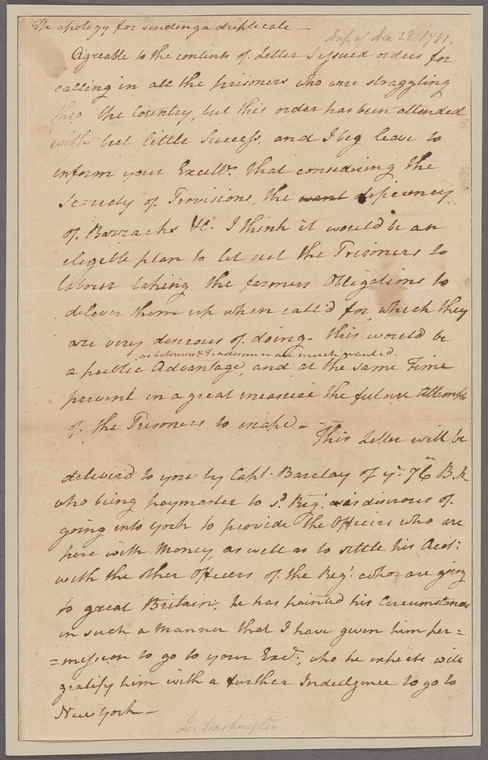 The apology for sending a duplicate—
Dec 28. 1781.
Agreable to the contents of Letter I issued orders for
calling in all the prisoners who were straggling
thro the Country, but this order has been attended
with but little Success, and I beg leave to
inform your Excellʸ. that considering the
Scarcity of Provisions, the want deficiency
of Barracks &c. I think it would be an
eligible plan to let out the Prisoners to
labour taking the farmers Obligations to
deliver them up when call'd for, which they
are very desirous of doing— this would be
as Labourers & Tradesmen are much wanted
a public Advantage, and at the same Time
prevent in a great measure the future attempts
of the Prisoners to escape—
This Letter will be
deliver'd to you by Capt. Barclay of yᵉ. 76 B. R
who being paymaster to sᵈ. Regᵗ. is desirous of
going into York to provide the Officers who are
here with Money as well as to settle his Accᵗˢ:
with the other Officers of the Regᵗ. who are going
to great Britain, he has painted his Circumstances
in such a Manner that I have given him per=
=mission to go to your Excʸ., who he expects will
gratify him with a further Indulgence to go to
New York—
Washington